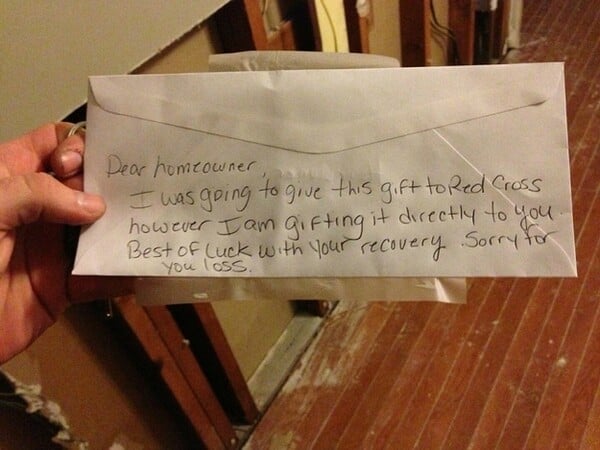 Dear homeowner,
I was going to give this gift to Red Cross
however I am gifting it directly to you.
Best of Luck with your recovery. Sorry for
you loss.